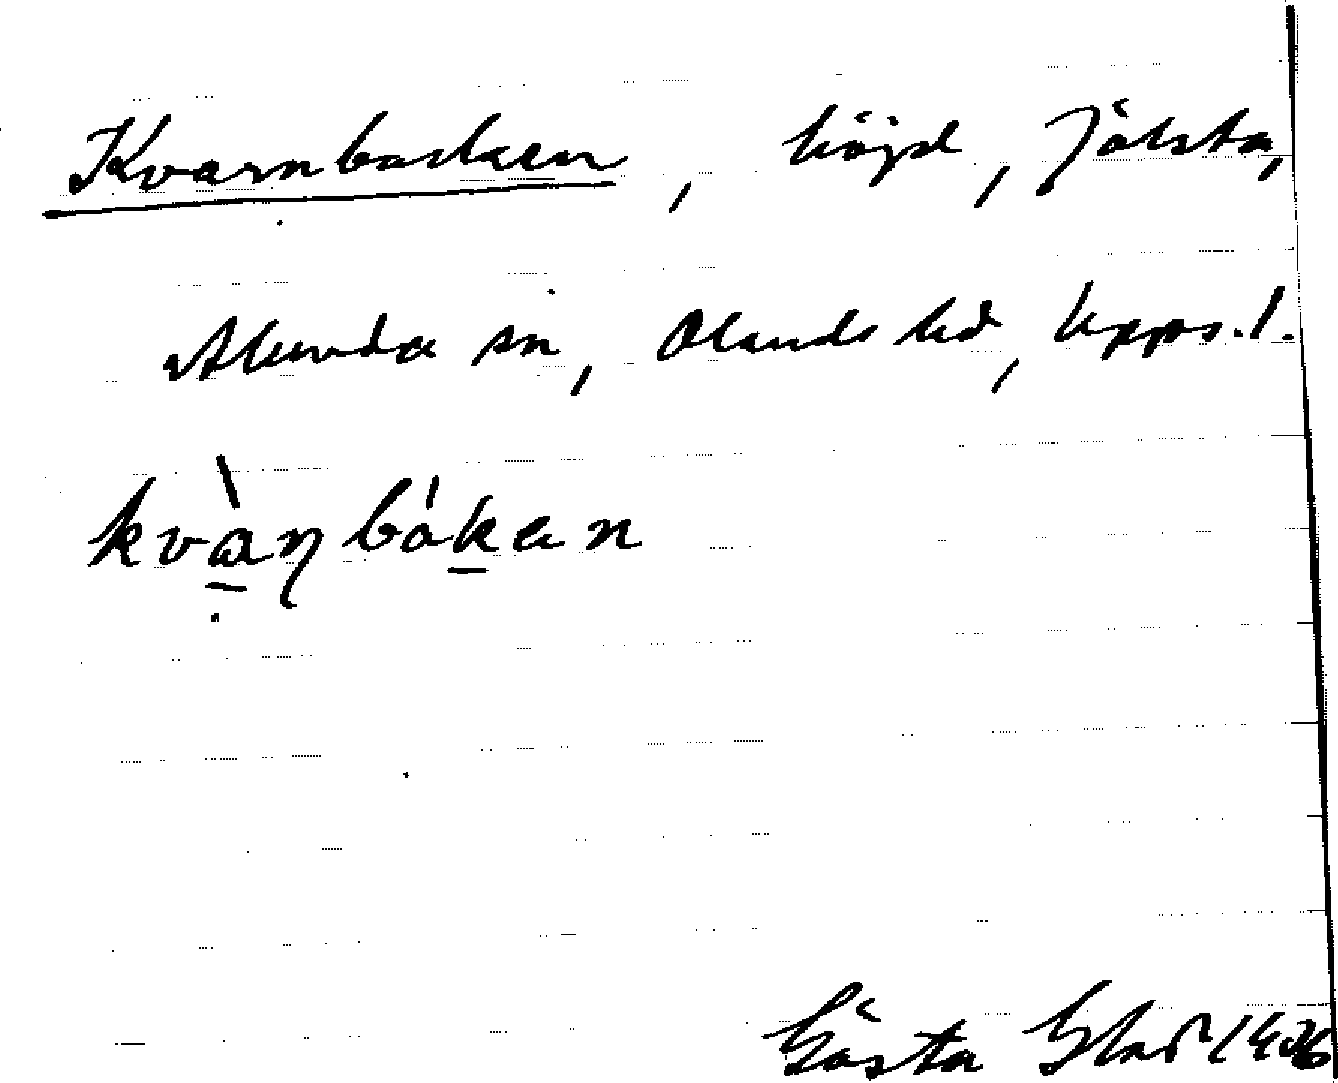 Kvarnbacken, höjd, Jålsta,
Alunda sn, Olands hd, Upps. l.
kvàṇbákan
Gösta